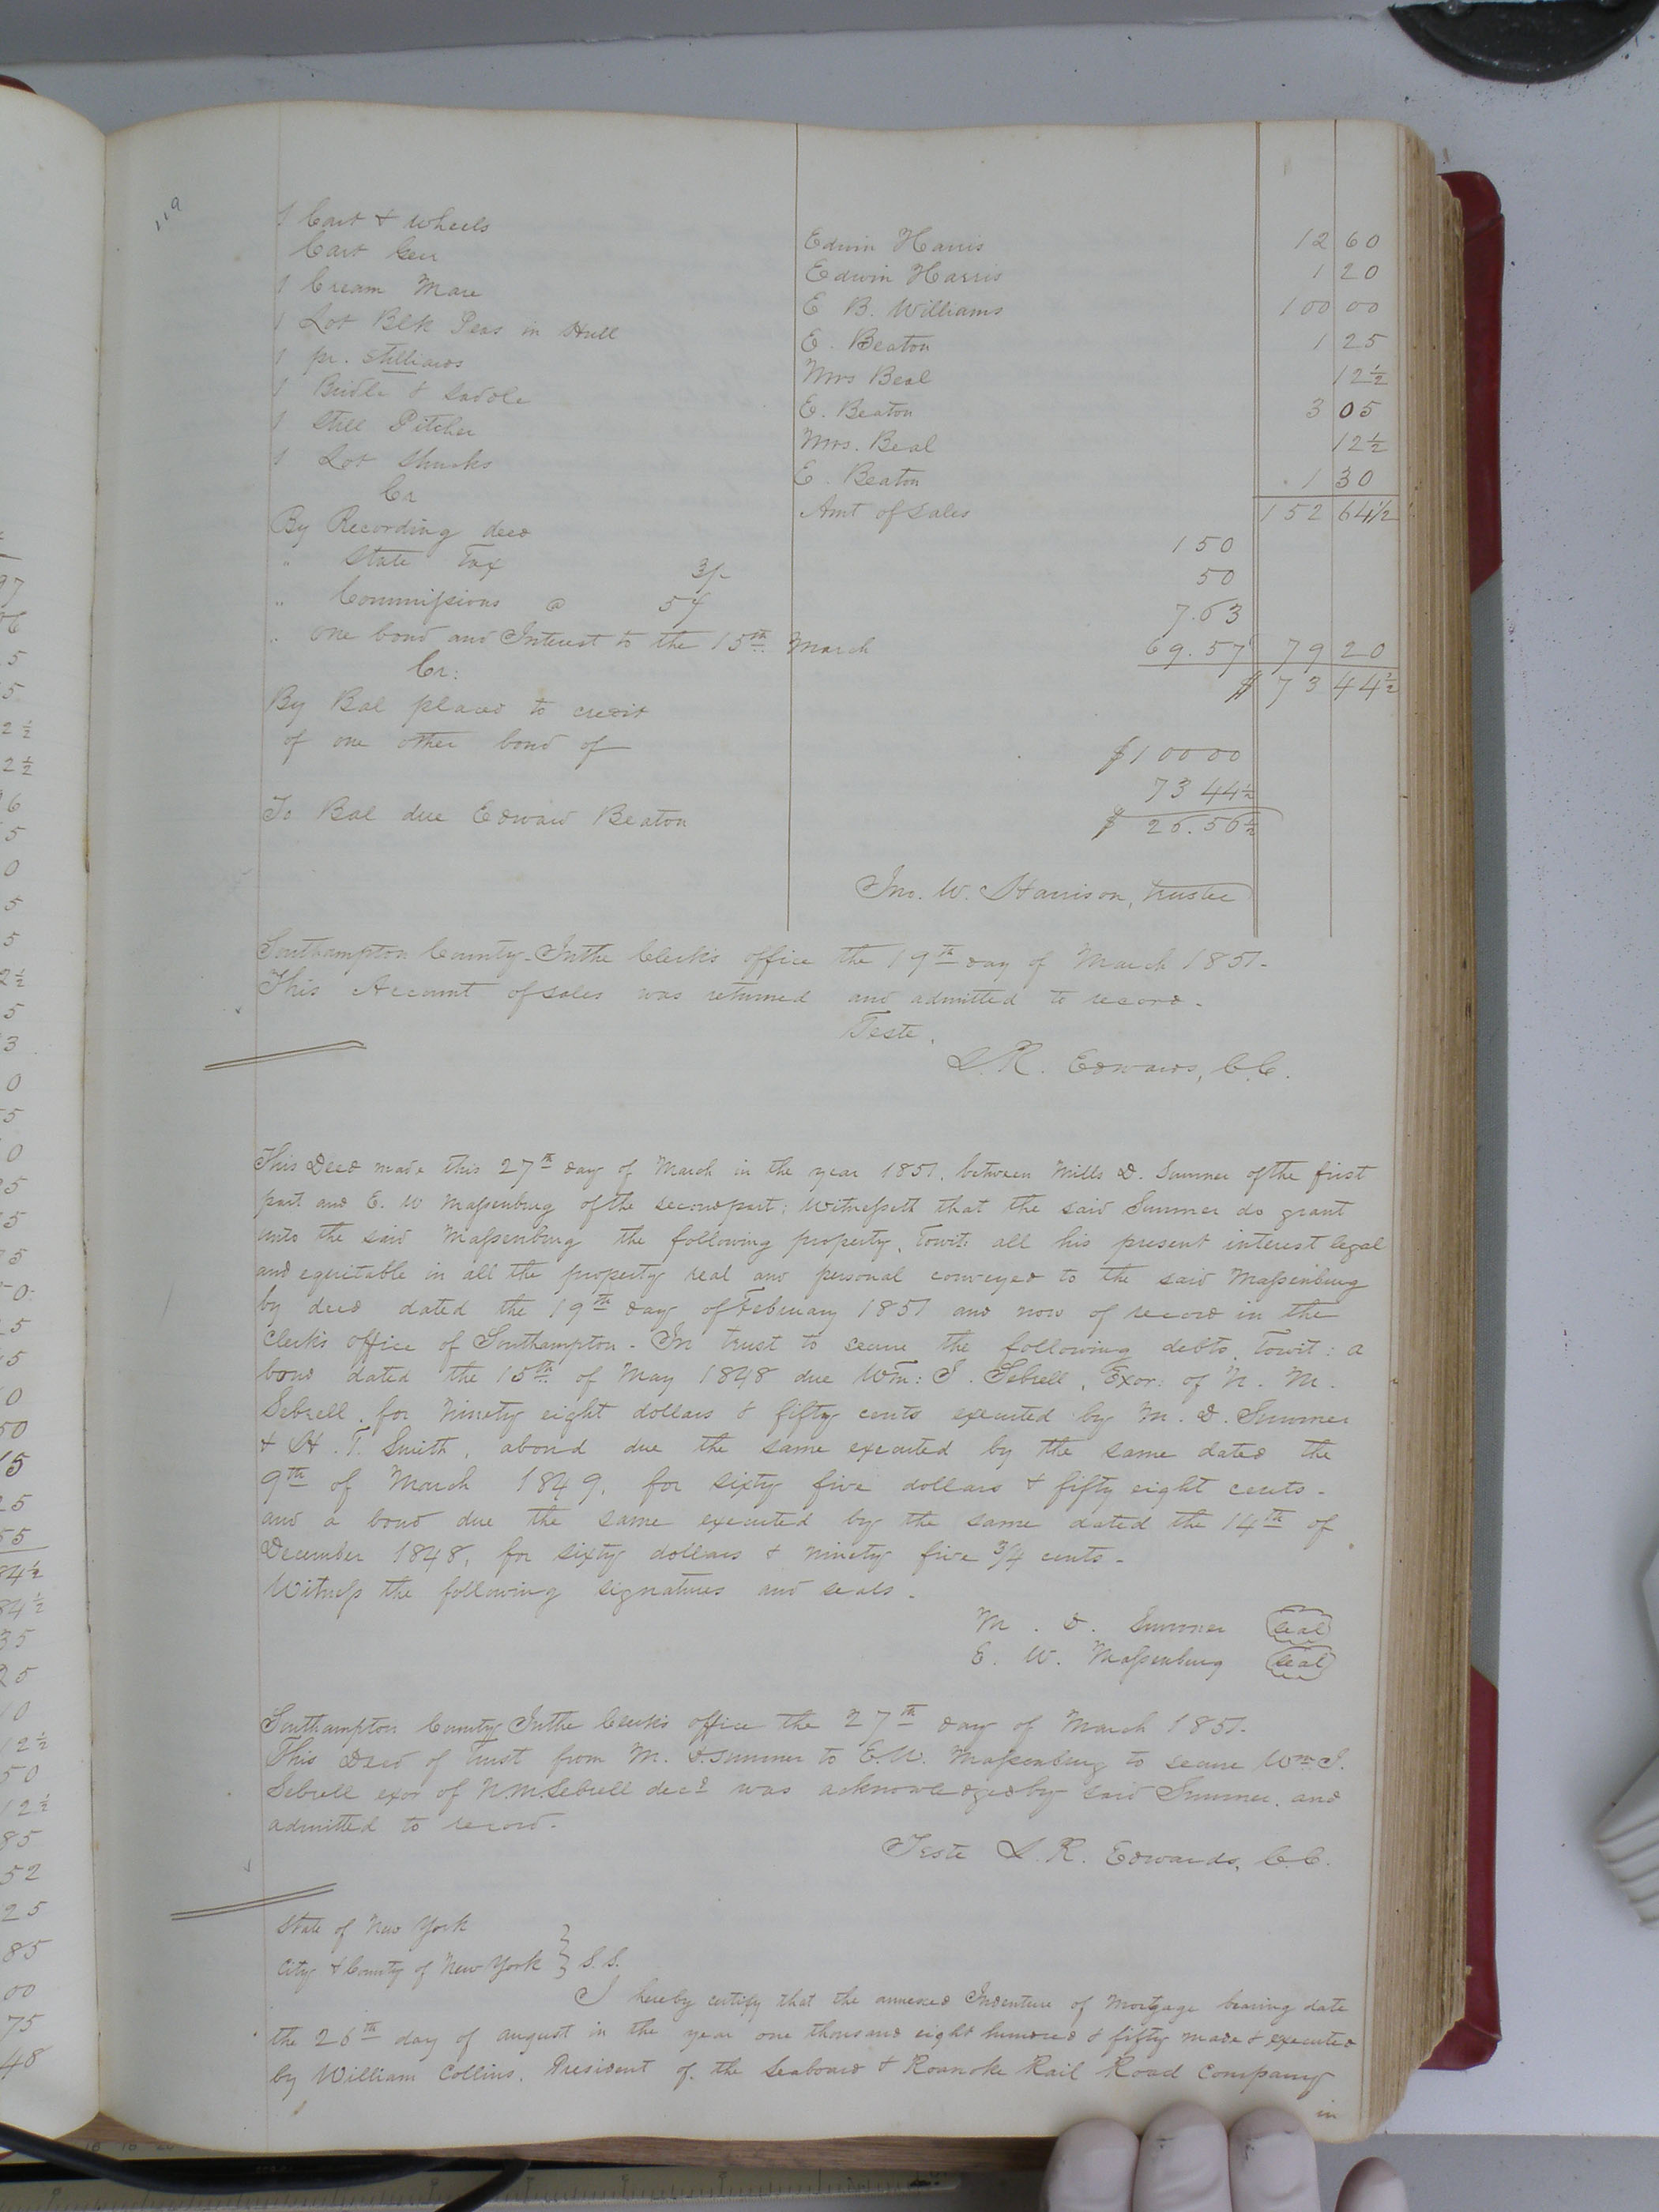 119
1 Cart & Wheels Edwin Harris 12 60
Cart Geer Edwin Harris 1 20
1 Cream Mare E B. Williams 100 00
1 Lot Blk Peas in Hull E. Beaton 1 25
1 pr. Stilliards Mrs Beal 12½
1 Bridle & Saddle E. Beaton 3 05
1 Still Pitcher Mrs. Beal 12½
1 Lot Shucks E. Beaton 1 30
Cr Amt of sales 152 64½
By Recording deed 150
" State Tax 3/- 50
" Commissions @ 5 7.63
" one bond and Interest to the 15th March 69.57 79 20
Cr: $ 73 44½
By Bal placed to credit
of one other bond of $100 00
73 44½
To Bal due Edward Beaton $ 26.56½
Jno. W. Harrison, trustee
Southampton County - In the Clerk's office the 19th day of March 1851-
This Account of sales was returned and admitted to record -
Teste,
L. R. Edwards, C.C.
This Deed made this 27th day of March in the year 1851, between Mills D. Sumner of the first
part and E. W Massenburg of the second part: Witnesseth that the said Sumner do grant
unto the said Massenburg the following property, Towit: all his present interest legal
and equitable in all the property real and personal conveyed to the said Massenburg
by deed dated the 19th day of February 1851 and now of record in the
Clerk's office of Southampton - In trust to secure the following debts, Towit: a
bond dated the 15th of May 1848 due Wm: J. Sebrell, Exor: of N. M.
Sebrell, for Ninety eight dollars & fifty cents executed by M. D. Sumner
& H. T. Smith, a bond due the same executed by the same dated the
9th of March 1849, for sixty five dollars & fifty eight cents -
and a bond due the same executed by the same dated the 14th of
December 1848, for sixty dollars & ninety five ¾ cents -
Witness the following signatures and seals -
M. D. Sumner seal
E. W. Massenburg seal
Southampton County In the Clerk's office the 27th day of March 1851-
This Deed of Trust from M. D Sumner to E.W. Massenburg to secure Wm J.
Sebrell exor of N.M.Sebrell decd was acknowledged by said Sumner, and
admitted to record -
Teste L. R. Edwards, C.C.
State of New York
City & County of New York } S.S.
I hereby certify that the annexed Indenture of Mortgage bearing date
the 26th day of august in the year one thousand eight hundred & fifty made & executed
by William Collins, President of the Seaboard & Roanoke Rail Road Company
in